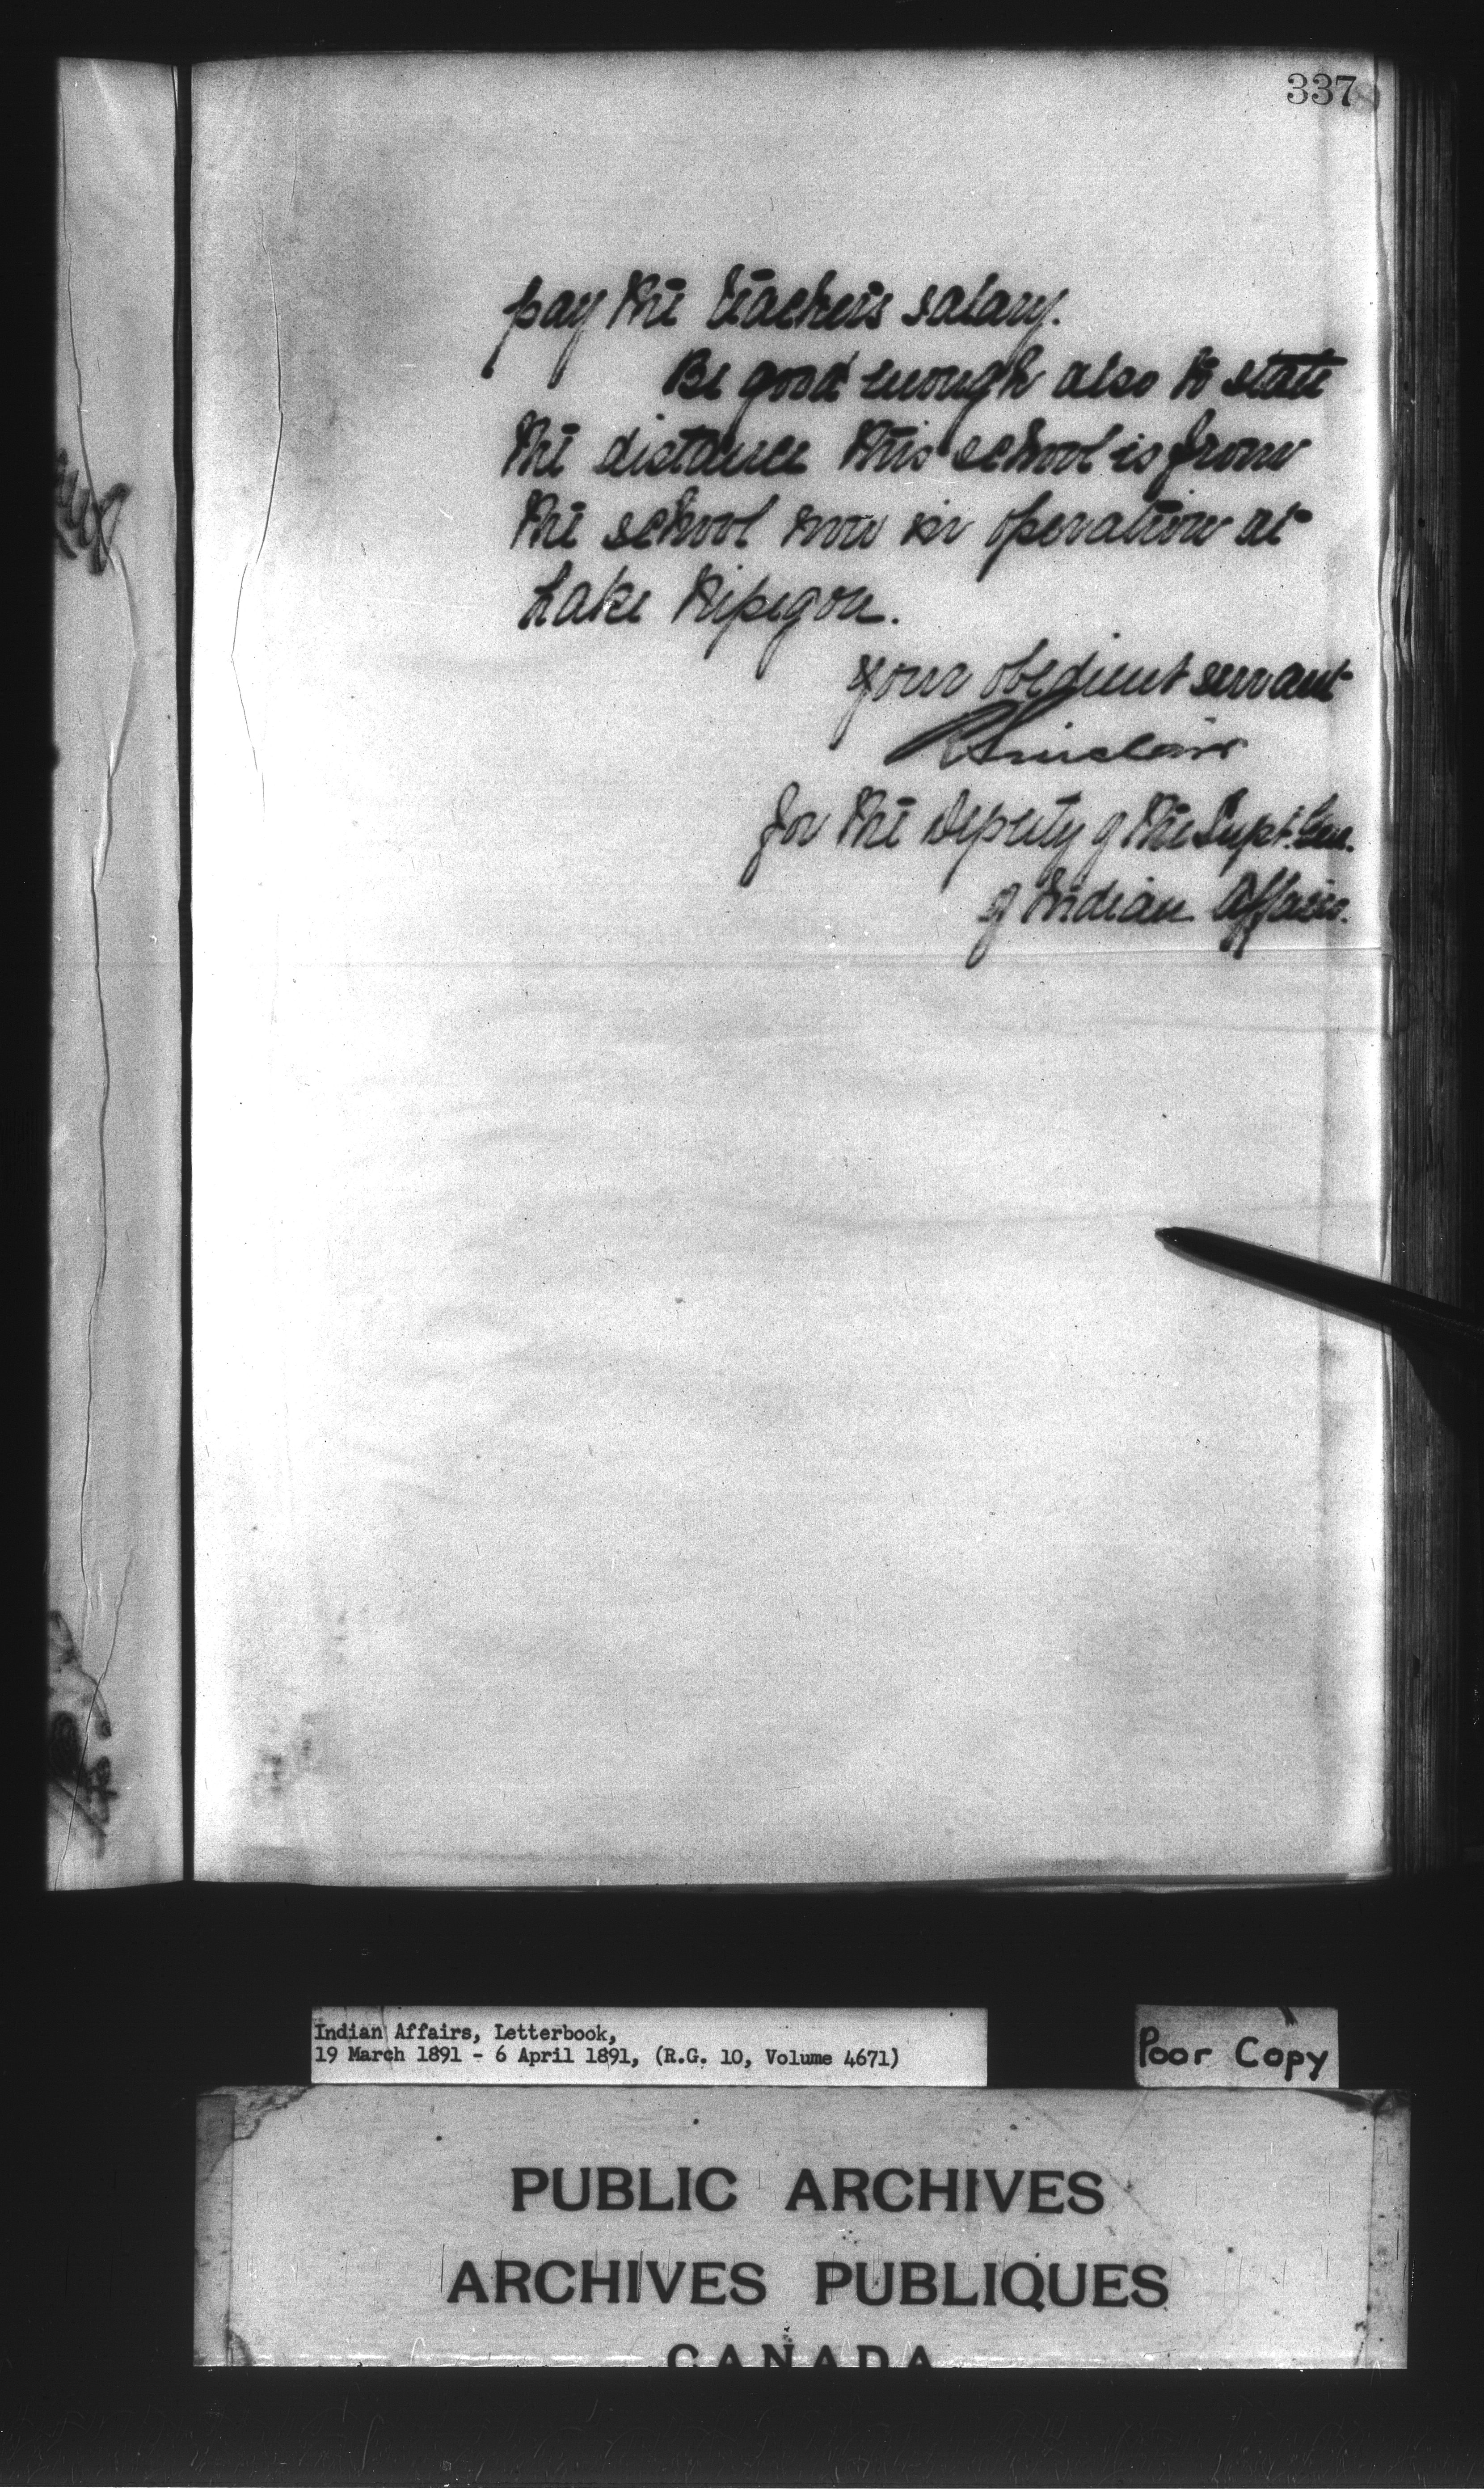 337
pay the teacher's salary.
Be good enough also to state
the distance this school is from
the school now in operation at
Lake Nipegon.
Your obedient servant
Sinclair
for the Deputy of the Supt. Gen.
of Indian Affairs.
Indian Affairs, Letterbook,
19 March 1891 - 6 April 1891, (R.G. 10, Volume 4671)
Poor Copy
PUBLIC ARCHIVES
ARCHIVES PUBLIQUES
CANADA